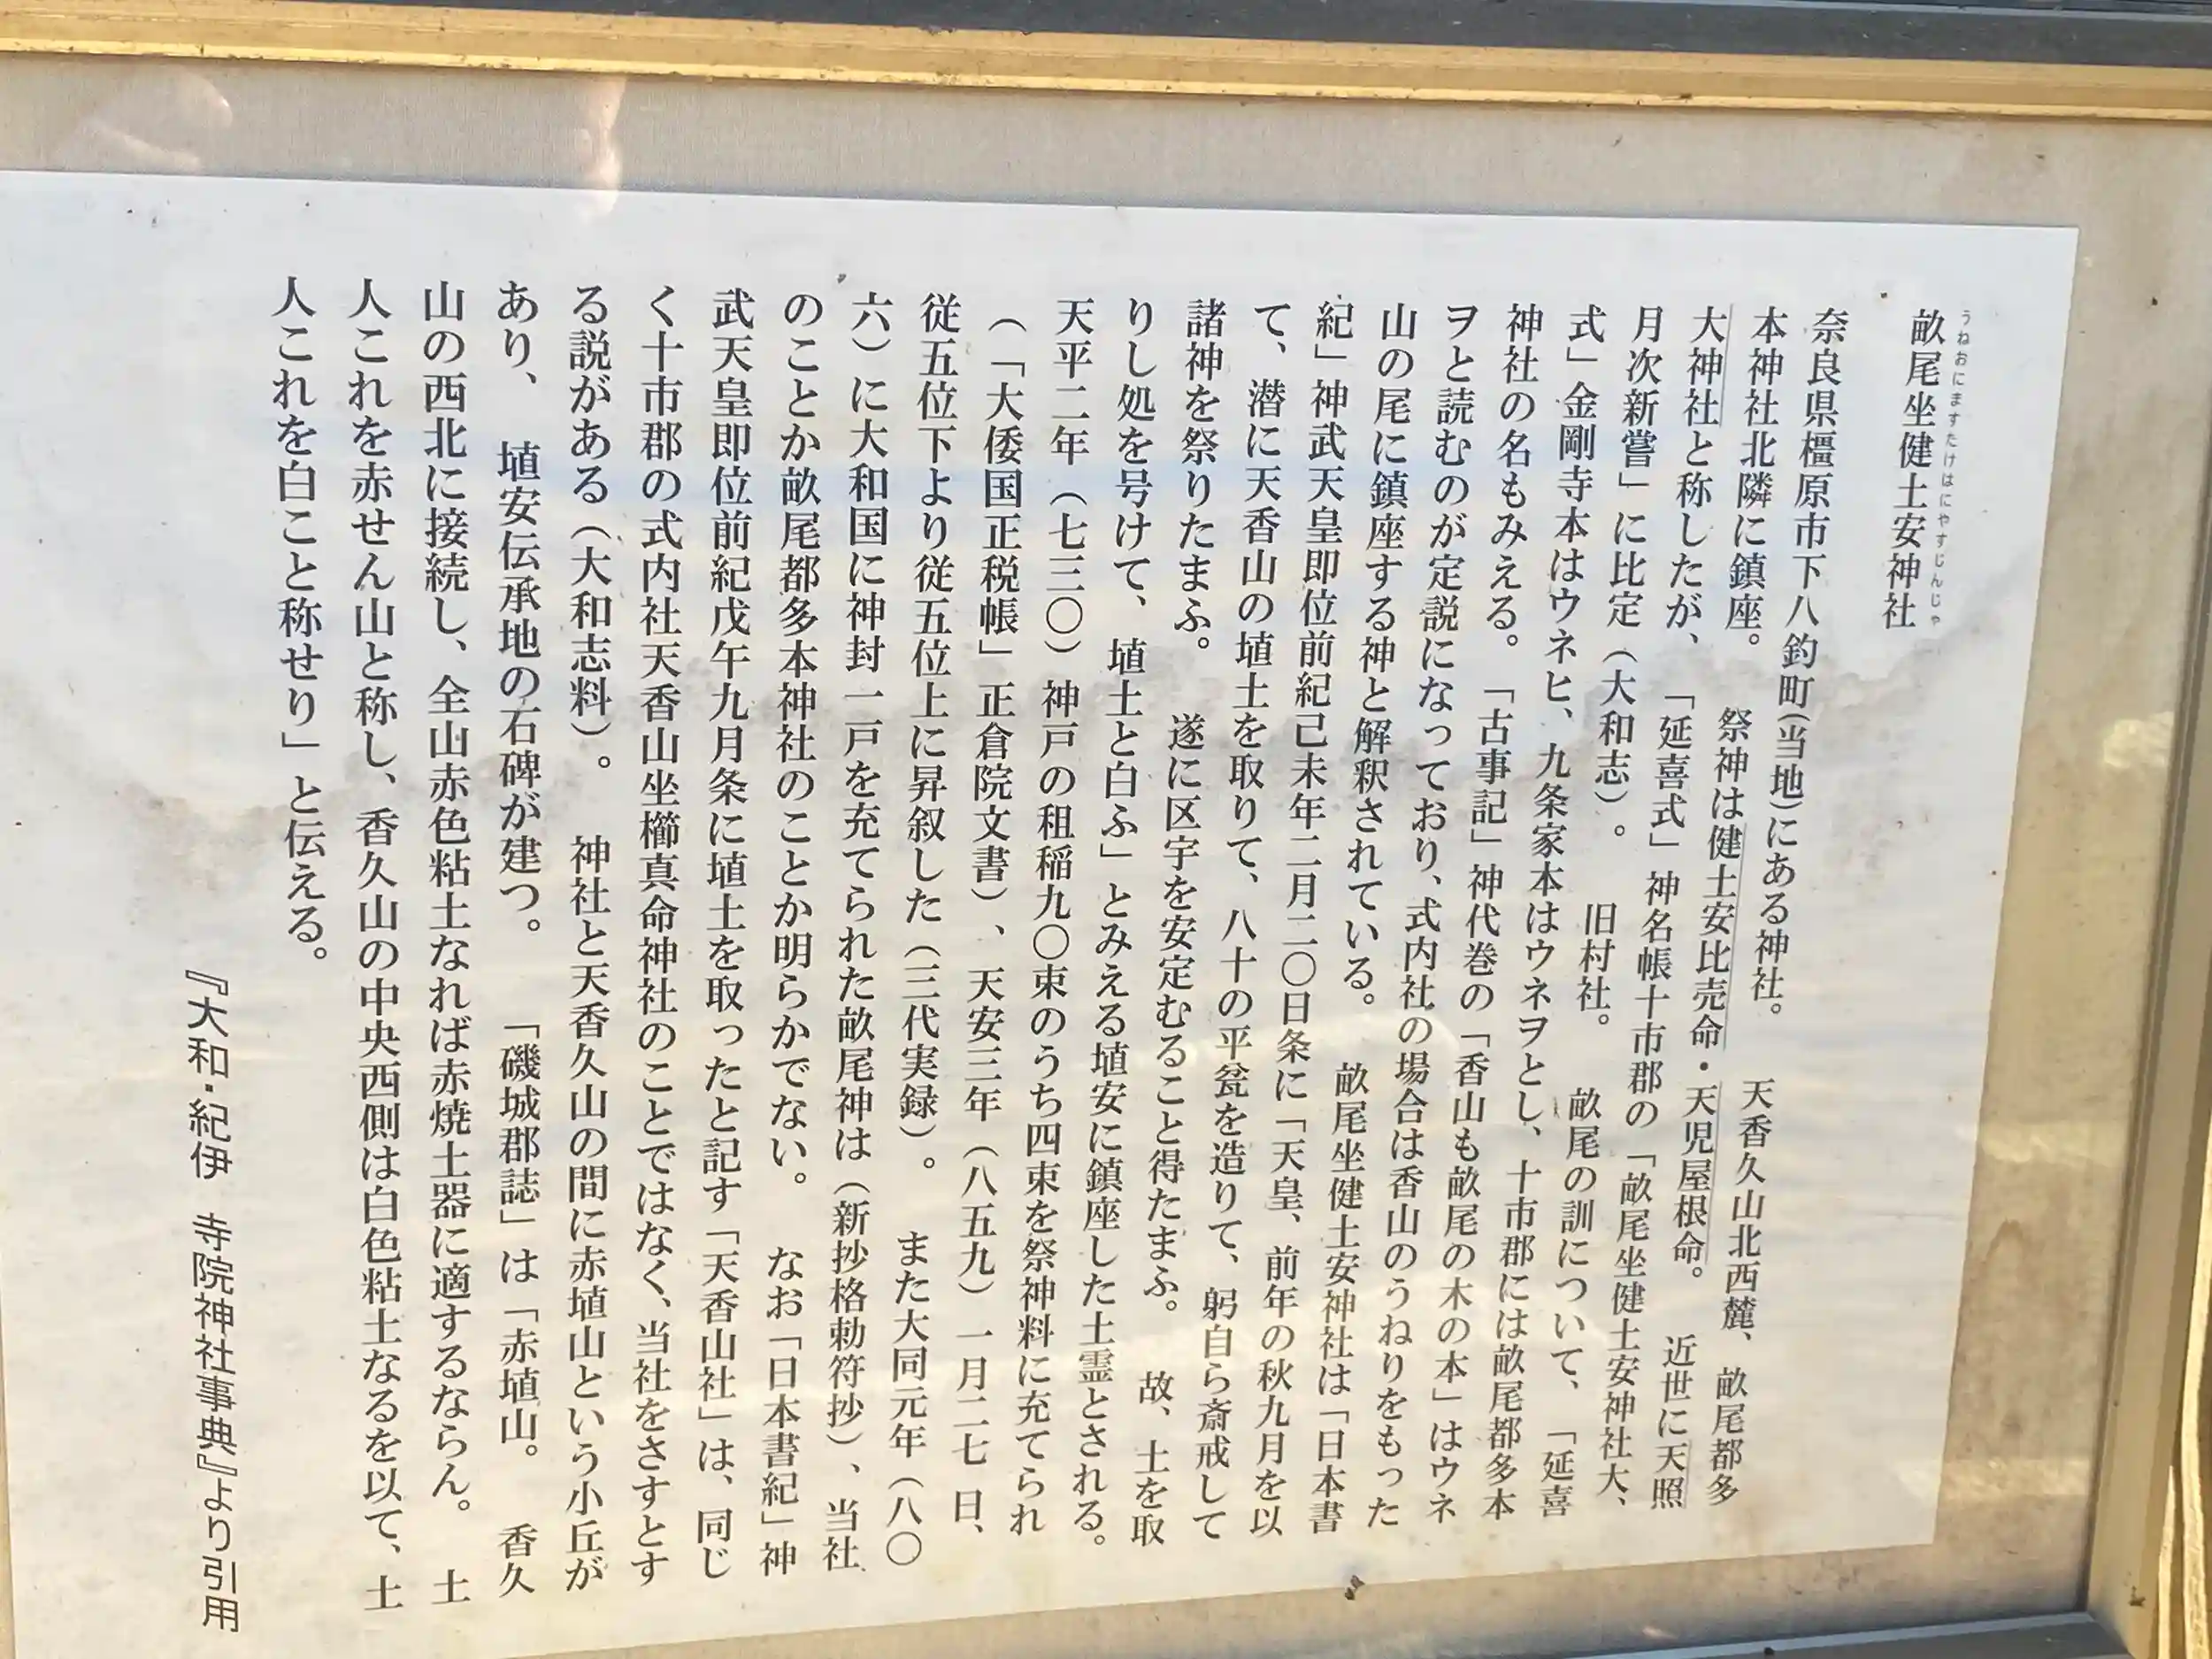 うねおにますたけはにやすじんじゃ
畝尾坐健土安神社
奈良県橿原市下八釣町(当地)にある神社。　天香久山北西麓、畝尾都多
本神社北隣に鎮座。　祭神は健土安比売命・天児屋根命。　近世に天照
大神社と称したが、「延喜式」神名帳十市郡の「畝尾坐健土安神社大、
月次新嘗」に比定（大和志）。　旧村社。　畝尾の訓について、「延喜
式」金剛寺本はウネヒ、九条家本はウネヲとし、十市郡には畝尾都多本
神社の名もみえる。「古事記」神代巻の「香山も畝尾の木の本」はウネ
ヲと読むのが定説になっており、式内社の場合は香山のうねりをもった
山の尾に鎮座する神と解釈されている。　畝尾坐健土安神社は「日本書
紀」神武天皇即位前紀己未年二月二〇日条に「天皇、前年の秋九月を以
て、潜に天香山の埴土を取りて、八十の平瓮を造りて、躬自ら斎戒して
諸神を祭りたまふ。　遂に区宇を安定むること得たまふ。　故、土を取
りし処を号けて、埴土と白ふ」とみえる埴安に鎮座した土霊とされる。
天平二年（七三〇）神戸の租稲九〇束のうち四束を祭神料に充てられ
（「大倭国正税帳」正倉院文書）、天安三年（八五九）一月二七日、
従五位下より従五位上に昇叙した（三代実録）。　また大同元年（八〇
六）に大和国に神封一戸を充てられた畝尾神は（新抄格勅符抄）、当社
のことか畝尾都多本神社のことか明らかでない。　なお「日本書紀」神
武天皇即位前紀戊午九月条に埴土を取ったと記す「天香山社」は、同じ
く十市郡の式内社天香山坐櫛真命神社のことではなく、当社をさすとす
る説がある（大和志料）。　神社と天香久山の間に赤埴山という小丘が
あり、埴安伝承地の石碑が建つ。　「磯城郡誌」は「赤埴山。　香久
山の西北に接続し、全山赤色粘土なれば赤焼土器に適するならん。　土
人これを赤せん山と称し、香久山の中央西側は白色粘土なるを以て、土
人これを白こと称せり」と伝える。
『大和・紀伊　寺院神社事典』より引用